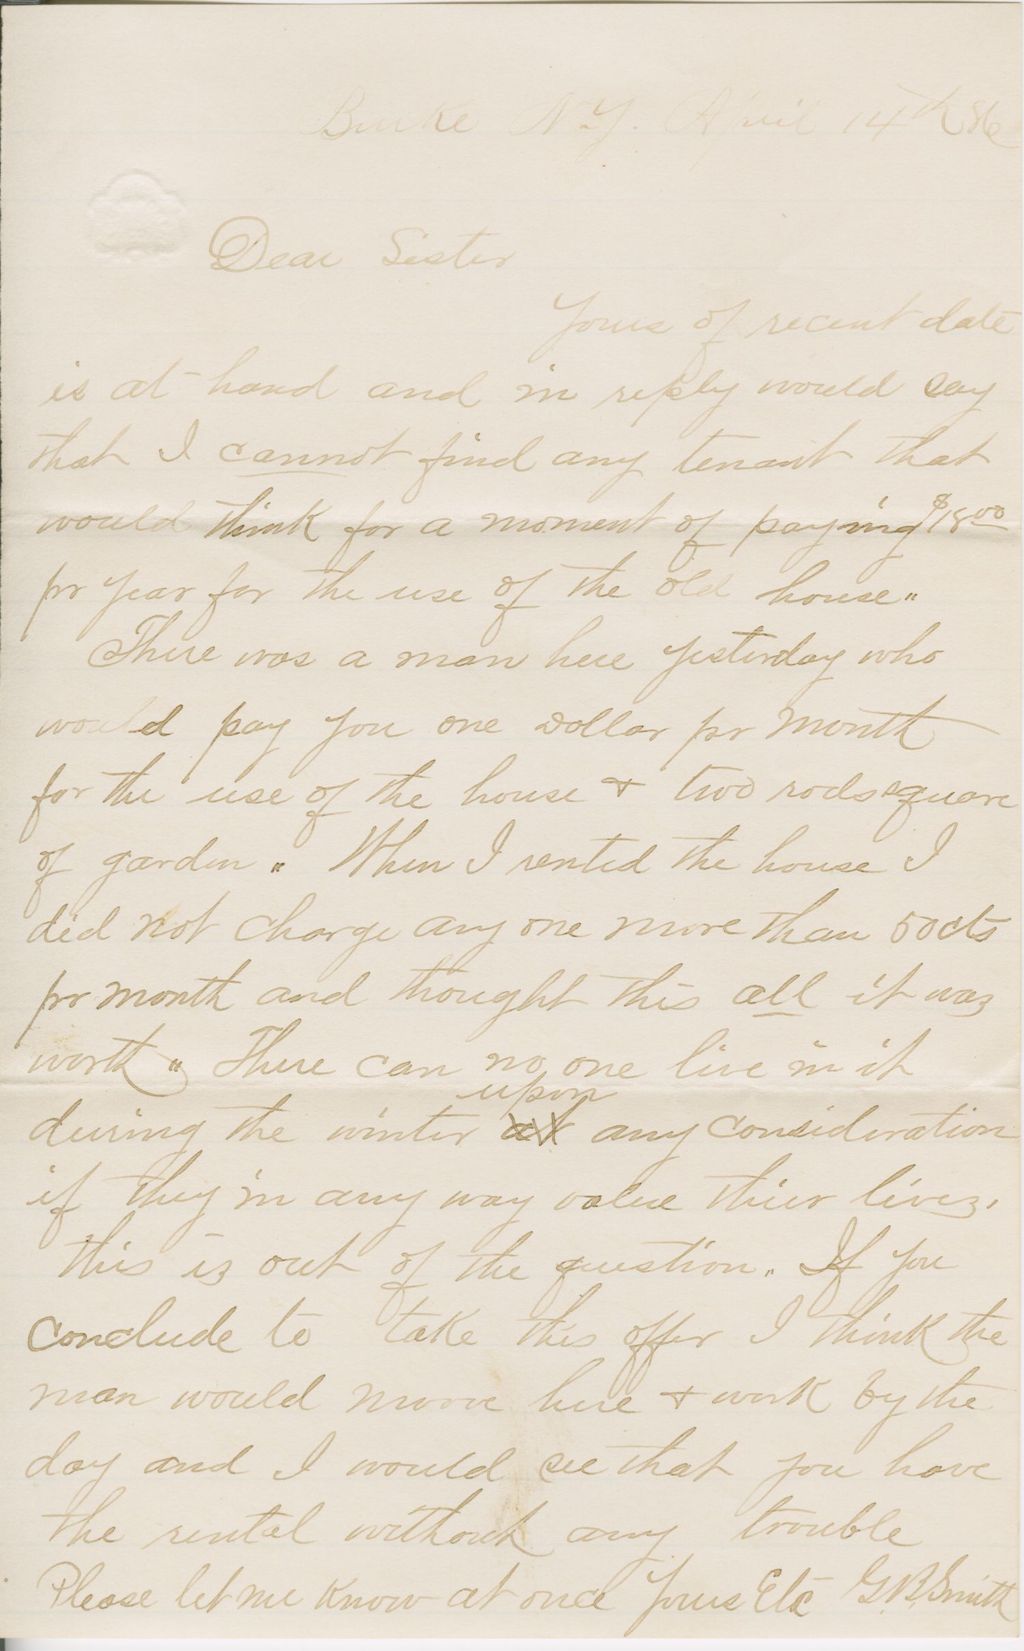 Burke N.Y. April 14th 86
Dear Sister
Yours of recent date
is at hand and in reply would say
that I cannot find any tenant that
would think for a moment of paying $18 00
pr year for the use of the old house"
There was a man here yesterday who
would pay you one Dollar pr month
for the use of the house & two rods square
of garden " When I rented the house I
did not charge any one more than 50cts
pr month and thought this all it was
worth " There can no one live in it
upon
during the winter at any consideration
if they in any way value thier lives.
this is out of the question " If you
conclude to take this offer I think the
man would moove here & work by the
day and I would see that you have
the rental without any trouble
Please let me know at once Yours Etc G.B. Smith